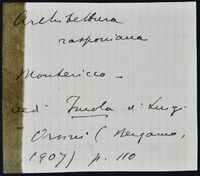 Architettura
rasponiana
Montericco -
vedi Imola di Luigi
Orsini (Bergamo,
1907) p. 110